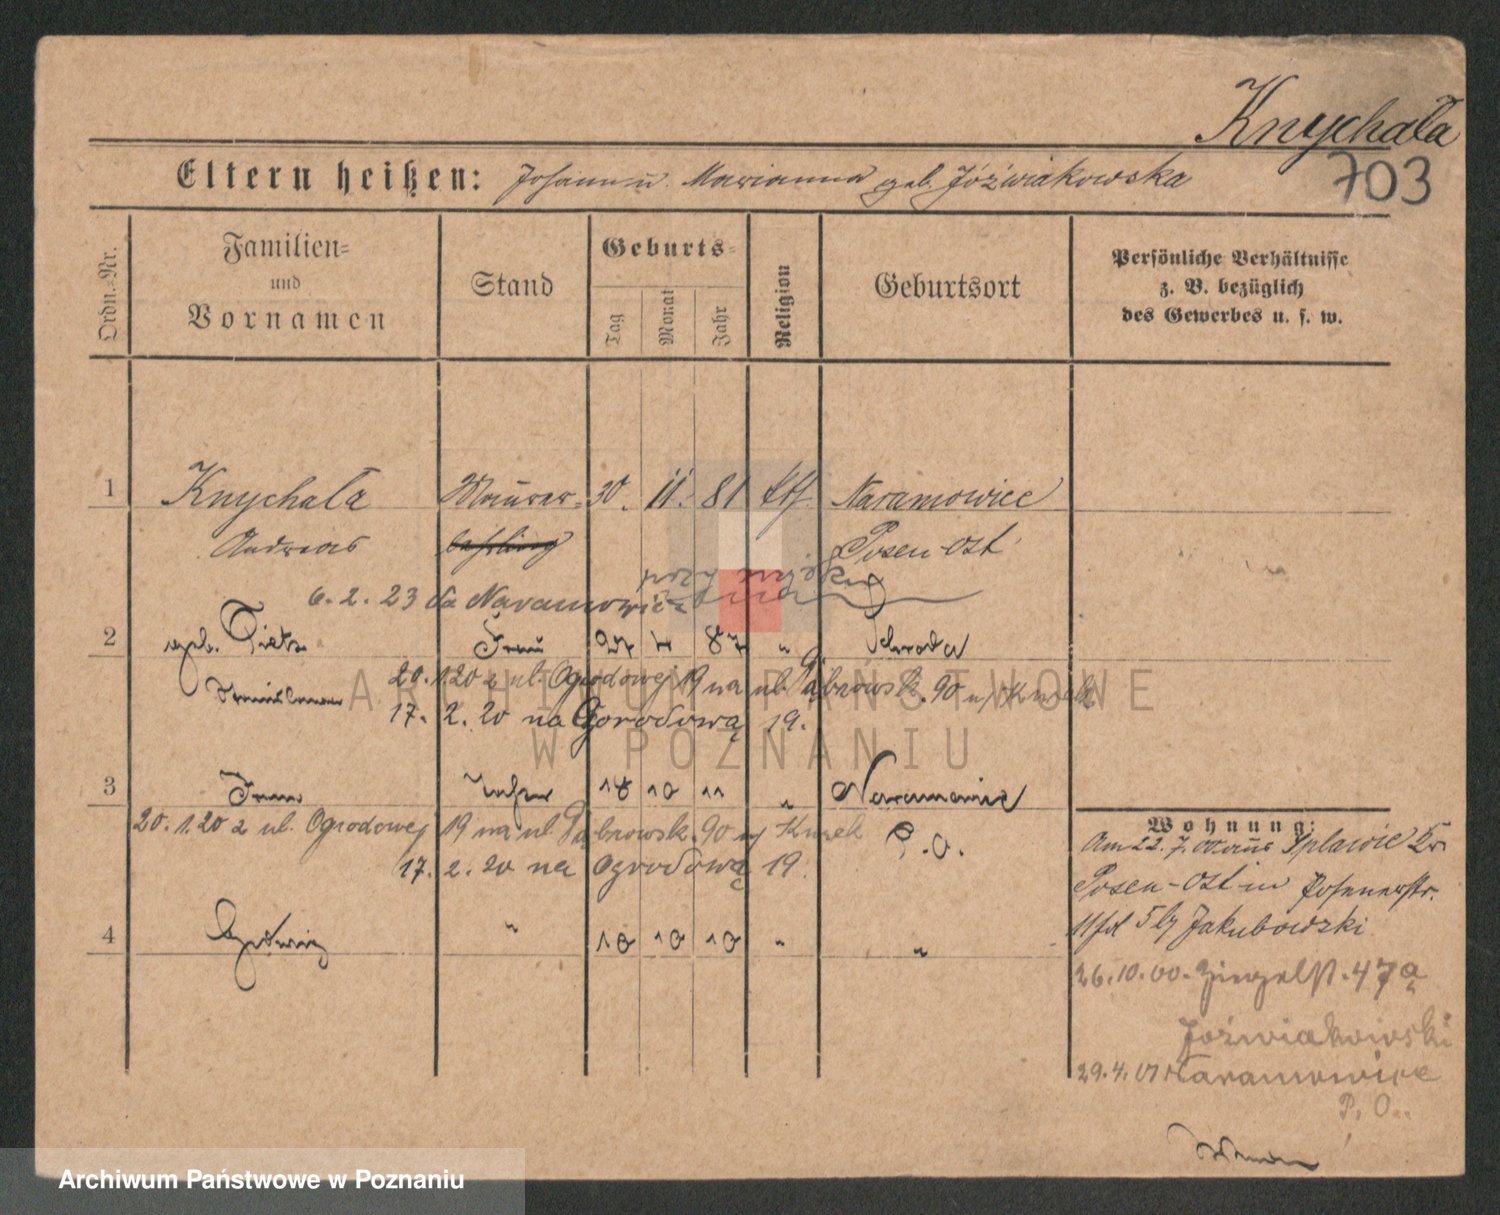 Knychała
703
Eltern heißen: Johann u. Marianna geb. Jóźwiakowska
Ordn.-Nr.
Familien-
und
Vornamen
Stand
Geburts-
Tag
Monat
Jahr
Religion
Geburtsort
Persönliche Verhältnisse
z. B. bezüglich
des Gewerbes u. s. w.
1 Knychała Maurer- 30. 11. 81 kth. Naramowice
Andreas lehrling Posen-Ost
przy wojsku
6.2.23 do Naramowic
2 geb. Tietz Frau 27 4 87 " Schroda
20.1.20 z ul. Ogrodowej 19 na ul. Dąbrowsk. 90 u/ Kurek
17. 2. 20 na Ogrodową 19.
3 Irene Tochter 18 10 11 " Naramowice
20.1.20 z ul. Ogrodowej 19 na ul. Dąbrowsk. 90 u/ Kurek P.O.
17. 2. 20 na Ogrodową 19
4 Hedwig " 10 10 10 " "
Wohnung:
Am 22.7.00 aus Splawie Kr.
Posen-Ost in Posenerstr.
11 bei Jakubowski
26.10.00. Ziegelst. 47a
Jóźwiakowski
29.4.01 Naramowice
P.O.
ARCHIWUM PAŃSTWOWE
W POZNANIU
Archiwum Państwowe w Poznaniu